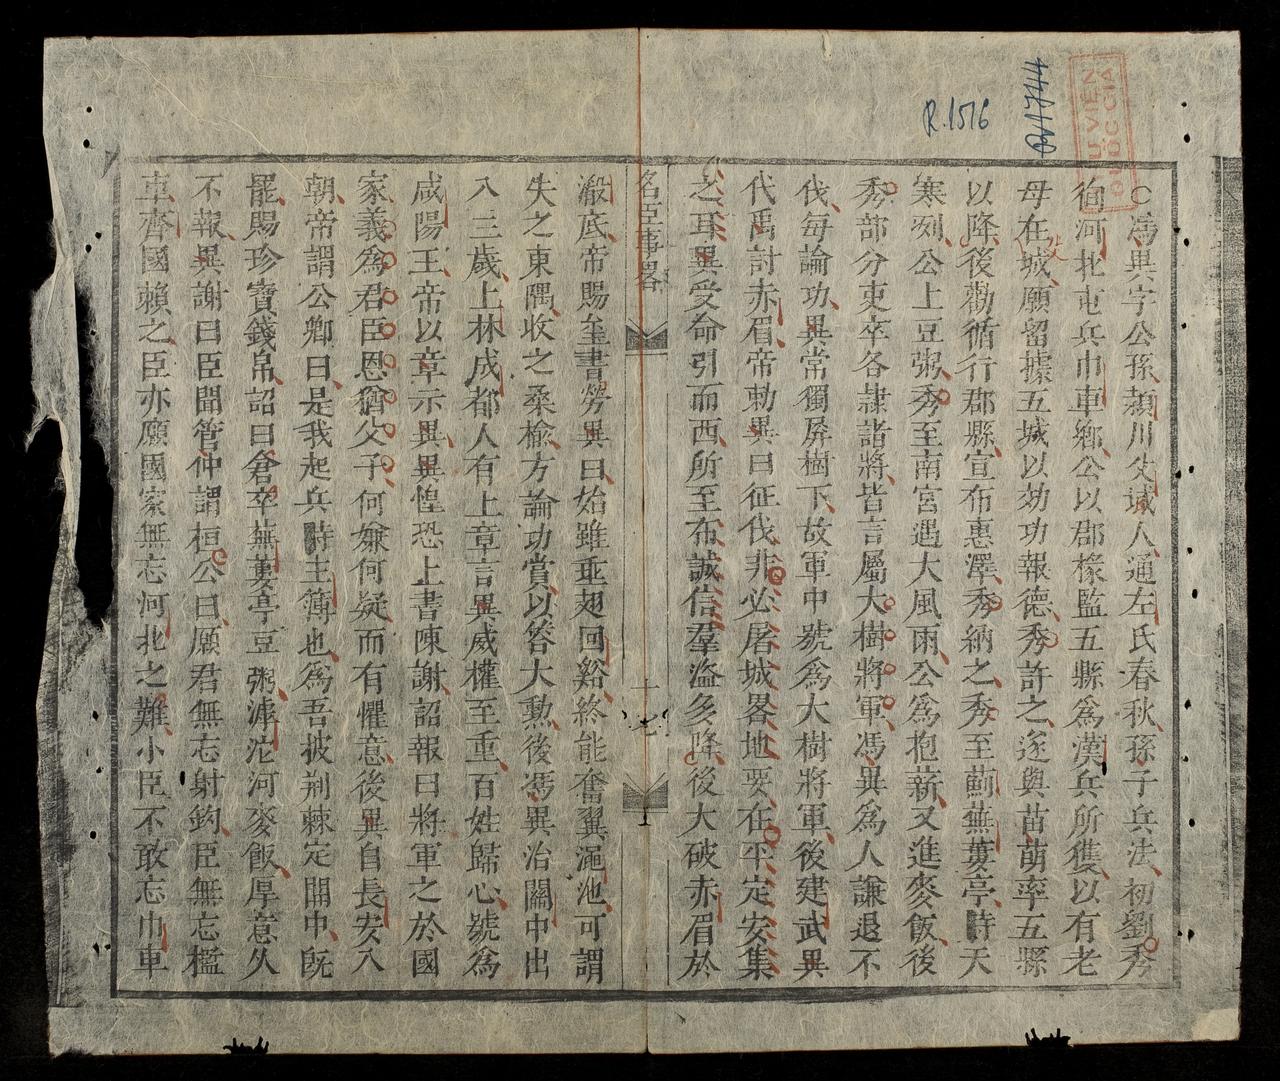 R.1516
THƯ VIỆN
QUỐC GIA
○馮異字公孫頴川父城人通左氏春秋孫子兵法初劉秀
徇河北屯兵巾車鄉公以郡椽監五縣爲漢兵所獲以有老
母在城願留據五城以効功報德秀許之遂與苗萌率五縣
以降後勸循行郡縣宣布惠澤秀納之秀至薊蕪蔞亭時天
寒洌公上豆粥秀至南宮遇大風雨公爲抱薪又進麥飯後
秀部分吏卒各隷諸將皆言屬大樹將軍馮異爲人謙退不
伐每論功異常獨屏樹下故軍中號爲大樹將軍後建武異
代禹討赤眉帝勅異曰征伐非必屠城畧地要在平定安集
之耳異受命引而西所至布誠信羣盗多降後大破赤眉於
名臣事畧
十七
澈底帝賜壐書勞異曰始雖垂翅回谿終能奮翼澠池可謂
失之東隅收之桑榆方論功賞以答大勲後馮異治關中出
入三歲上林成都人有上章言異威權至重百姓歸心號為
咸陽王帝以章示異異惶恐上書陳謝詔報曰將軍之於國
家義為君臣恩猶父子何嫌何疑而有懼意後異自長安入
朝帝謂公卿曰是我起兵時主簿也為吾披荆棘定關中旣
罷賜珍寶錢帛詔曰倉卒蕪蔞亭豆粥滹沱河麥飯厚意久
不報異謝曰臣聞管仲謂桓公曰願君無忘射鈎臣無忘檻
車齊國賴之臣亦願國家無忘河北之難小臣不敢忘巾車